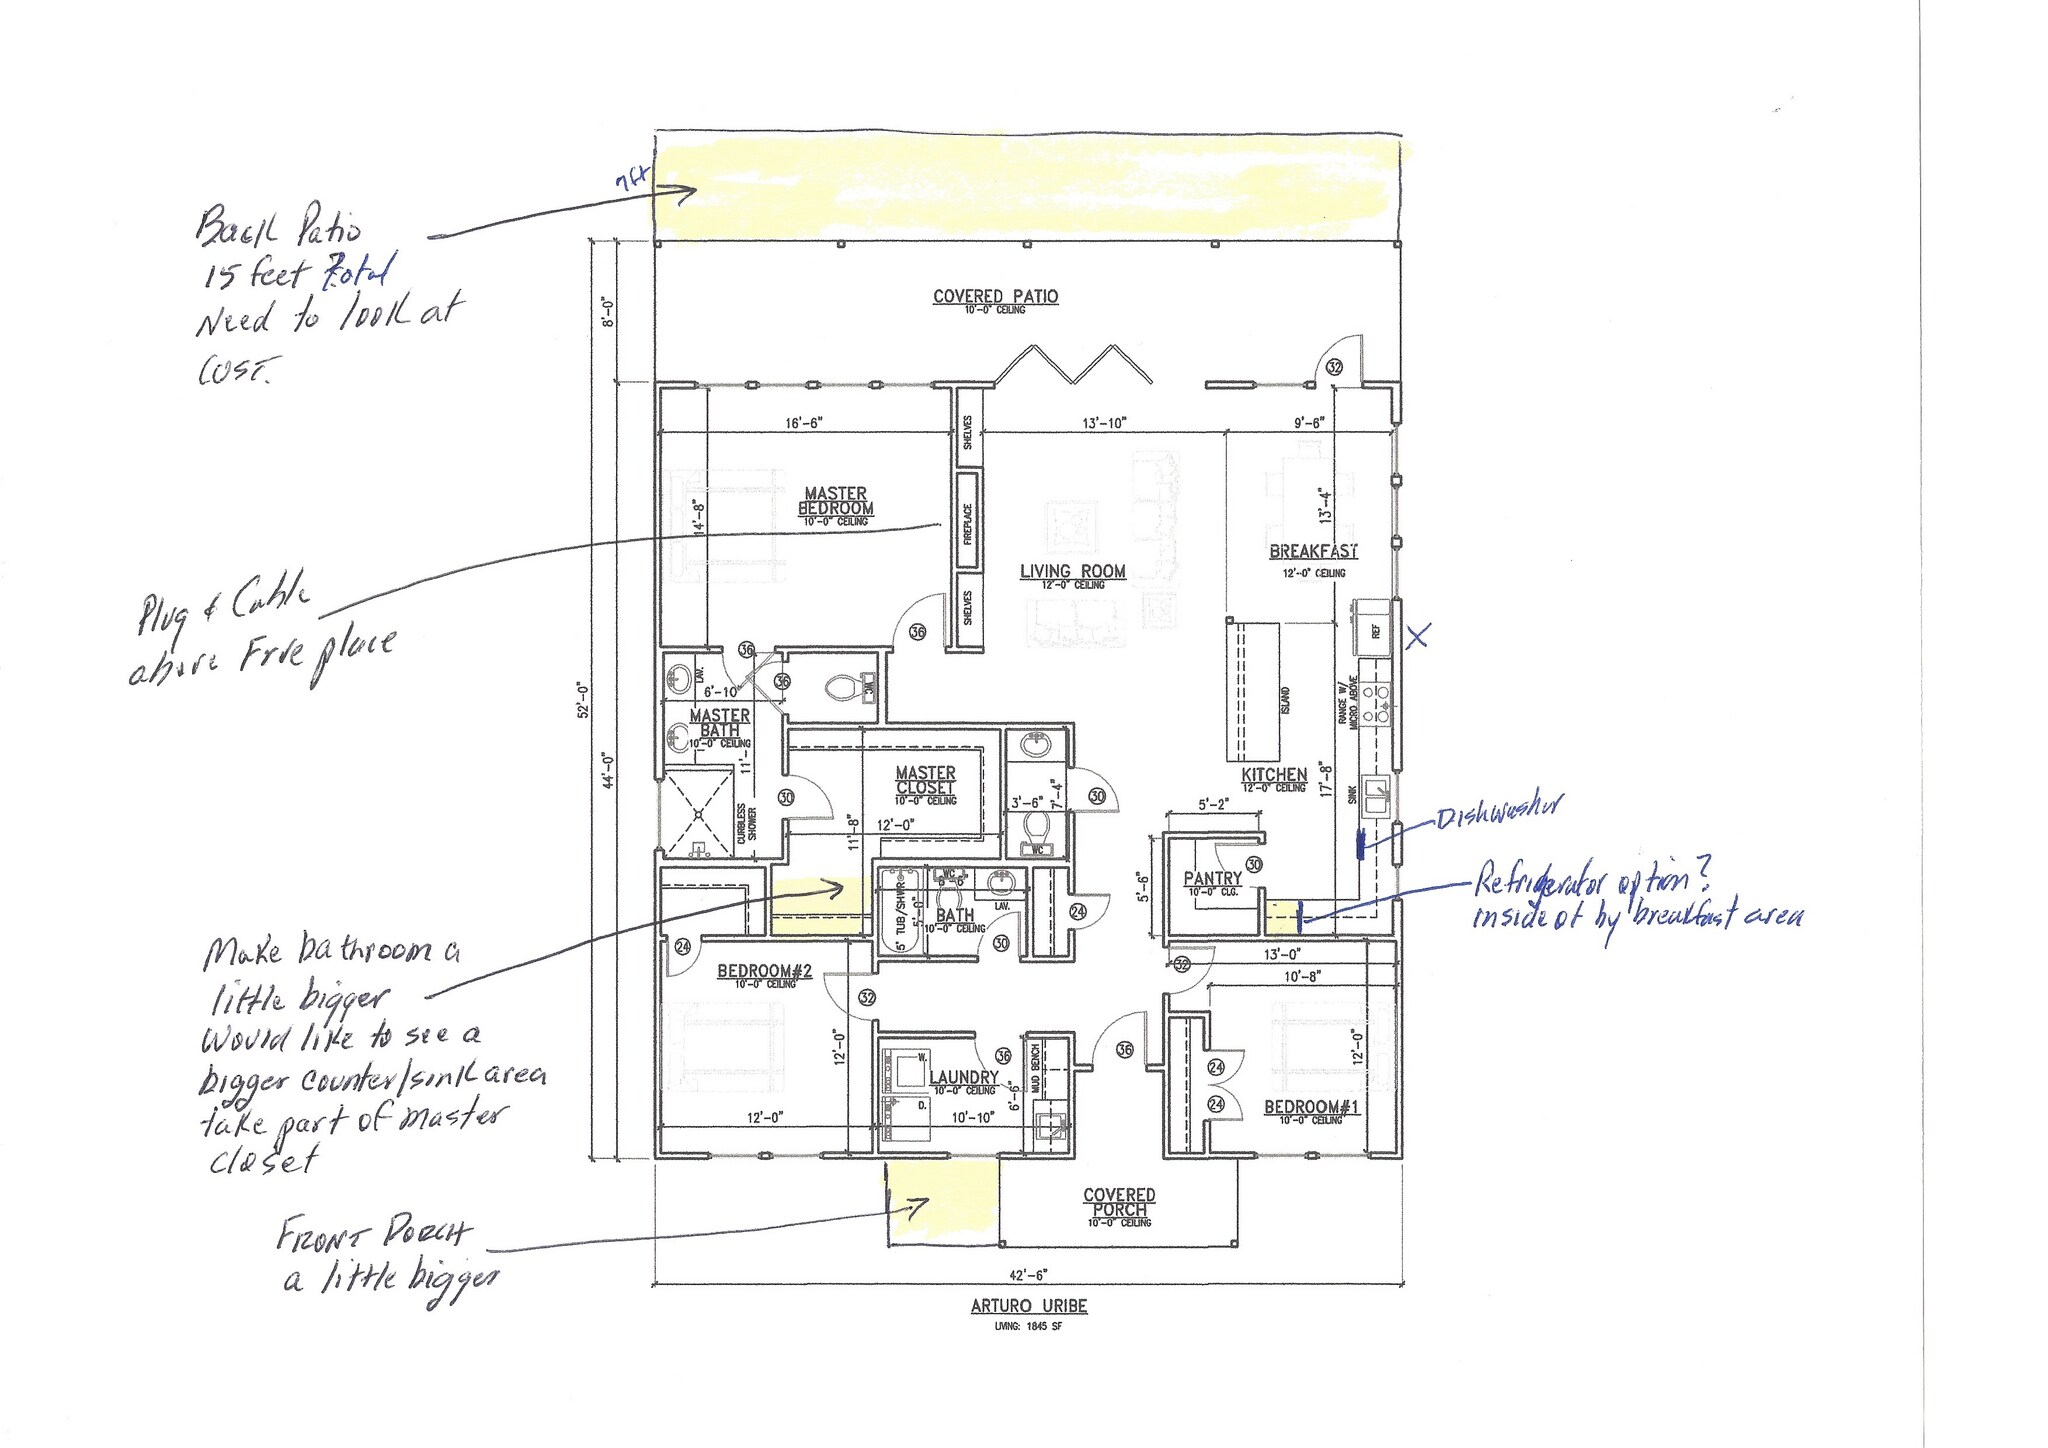 7ft
Back Patio
15 feet Total
Need to look at
COST.
COVERED PATIO
10'-0" CEILING
8'-0"
32
16'-6"
13'-10"
9'-6"
SHELVES
MASTER
BEDROOM
10'-0" CEILING
14'-8"
FIREPLACE
13'-4"
BREAKFAST
12'-0" CEILING
LIVING ROOM
12'-0" CEILING
SHELVES
Plug & Cable
above Fire place
36
REF
X
36
LAV.
6'-10"
36
WC
MASTER
BATH
10'-0" CEILING
11'-
52'-0"
44'-0"
ISLAND
RANGE W/
MICRO ABOVE
MASTER
CLOSET
10'-0" CEILING
KITCHEN
12'-0" CEILING
17'-8"
SINK
30
CURBLESS
SHOWER
12'-0"
11'-8"
3'-6"
7'-4"
30
WC
5'-2"
Dishwasher
PANTRY
10'-0" CLG.
30
5'-6"
Refrigerator option?
inside ot by breakfast area
5' TUB/SHWR
WC
LAV.
BATH
10'-0" CEILING
30
24
Make bathroom a
little bigger
Would like to see a
bigger counter/sink area
take part of master
closet
24
BEDROOM#2
10'-0" CEILING
32
12'-0"
12'-0"
32
13'-0"
10'-8"
36
36
W.
D.
LAUNDRY
10'-0" CEILING
10'-10"
6'-6"
MUD BENCH
24
24
12'-0"
BEDROOM#1
10'-0" CEILING
FRONT PORCH
a little bigger
COVERED
PORCH
10'-0" CEILING
42'-6"
ARTURO URIBE
LIVING: 1845 SF